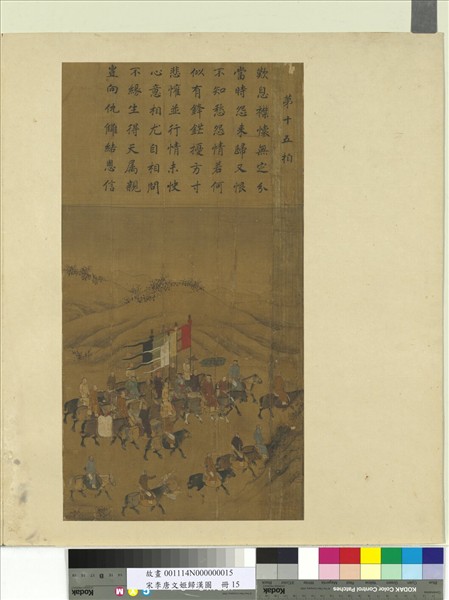 第十五拍
歎息襟懷無定分
當時怨來歸又恨
不知愁怨情若何
似有鋒鋩擾方寸
悲懽並行情未快
心意相尤自相問
不緣生得天属親
豈向仇讎結恩信
故畫 001114N000000015
宋李唐文姬歸漢圖 冊 15
Kodak
KODAK Color Control Patches